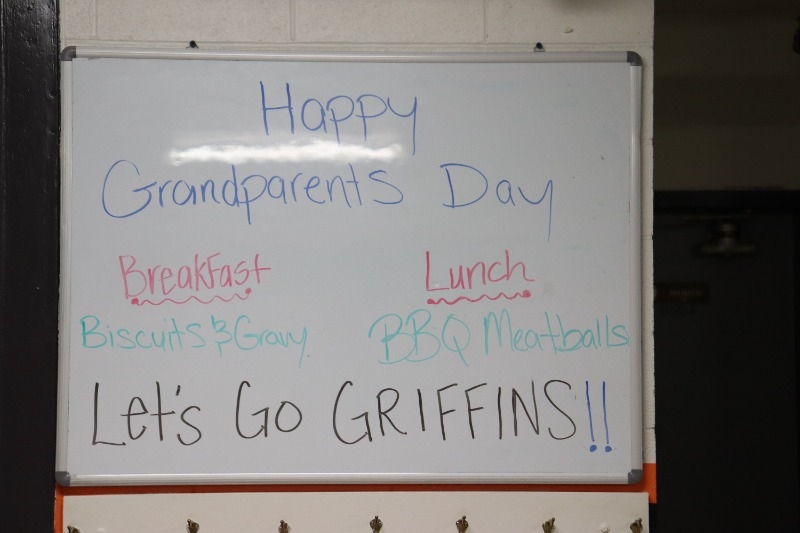 Happy
Grandparents Day
Breakfast Lunch
Biscuits & Gravy BBQ Meatballs
Let's Go GRIFFINS!!